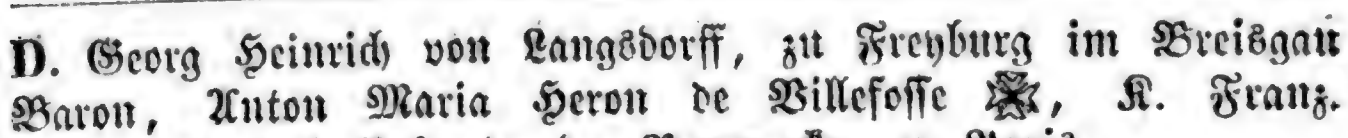 D. Georg Heinrich von Langsdorff, zu Freyburg im Breisgau
Baron, Anton Maria Heron de Villefosse ✠, K. Franz.